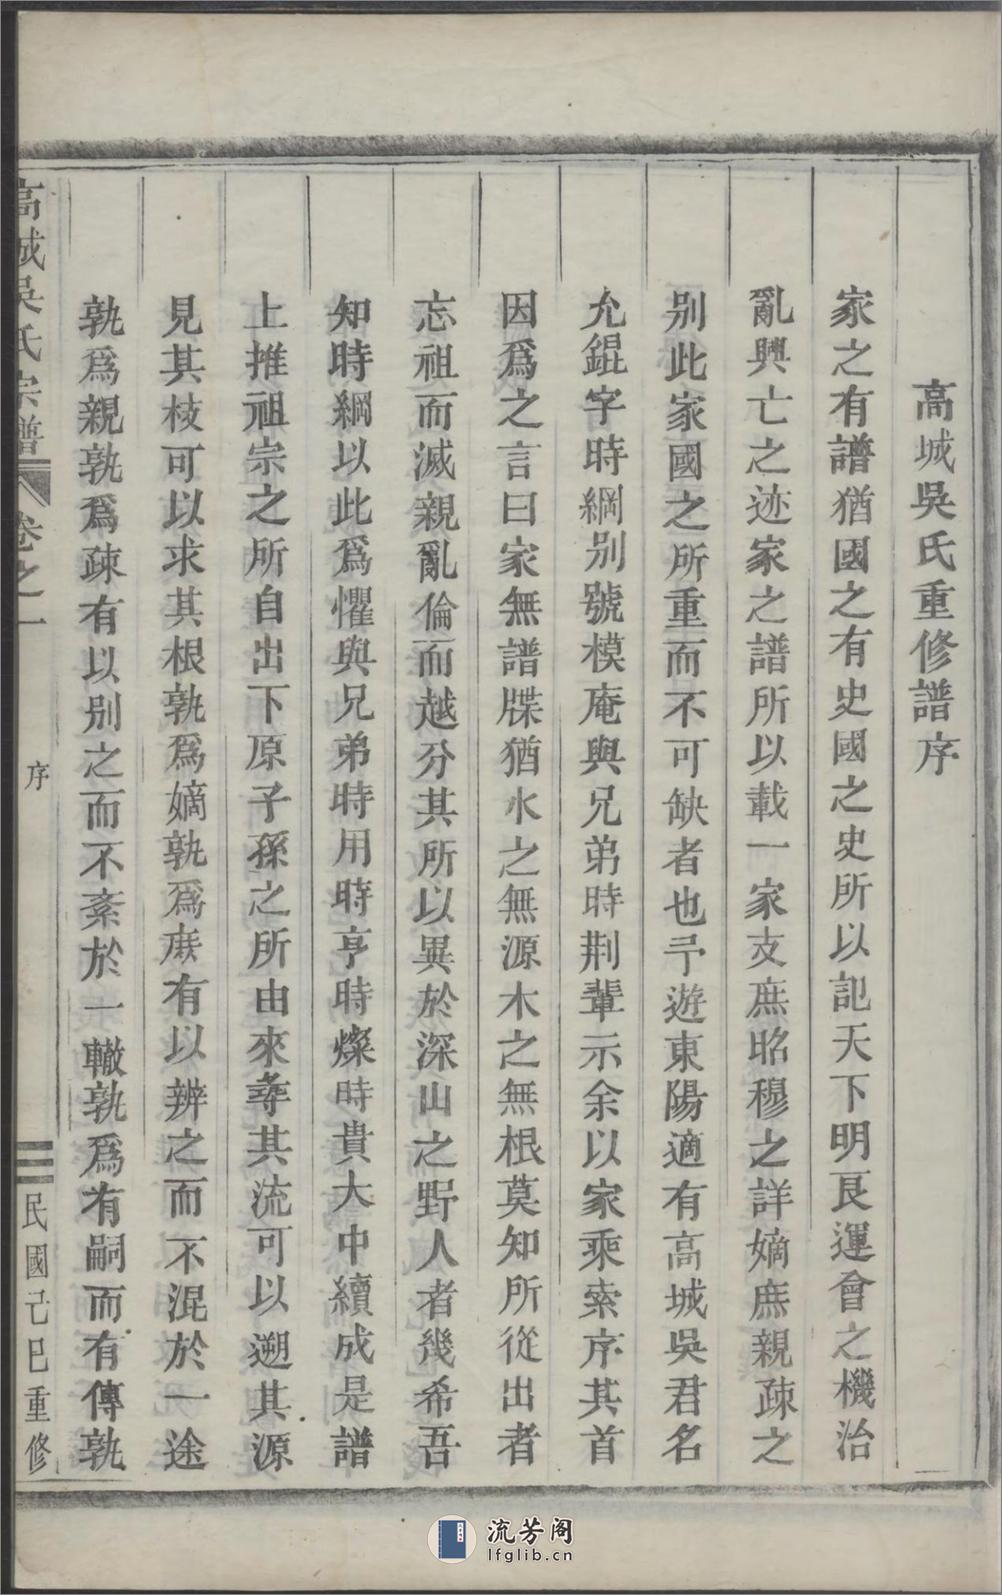 高城吳氏重修譜序
家之有譜猶國之有史國之史所以記天下明良運會之機治
亂興亡之迹家之譜所以載一家支庶昭穆之詳嫡庶親疎之
别此家國之所重而不可缺者也予遊東陽適有高城吳君名
允錕字時綱别號模庵與兄弟時荆輩示余以家乘索序其首
因爲之言曰家無譜牒猶水之無源木之無根莫知所從出者
忘祖而滅親亂倫而越分其所以異於深山之野人者幾希吾
知時綱以此爲懼與兄弟時用時亨時燦時貴大中續成是譜
上推祖宗之所自出下原子孫之所由來尋其流可以遡其源
見其枝可以求其根孰爲嫡孰爲庶有以辨之而不混於一途
孰爲親孰爲疎有以别之而不紊於一轍孰爲有嗣而有傳孰
高城吳氏宗譜 卷之一 序 三 民國己巳重修
流芳阁
lfglib.cn